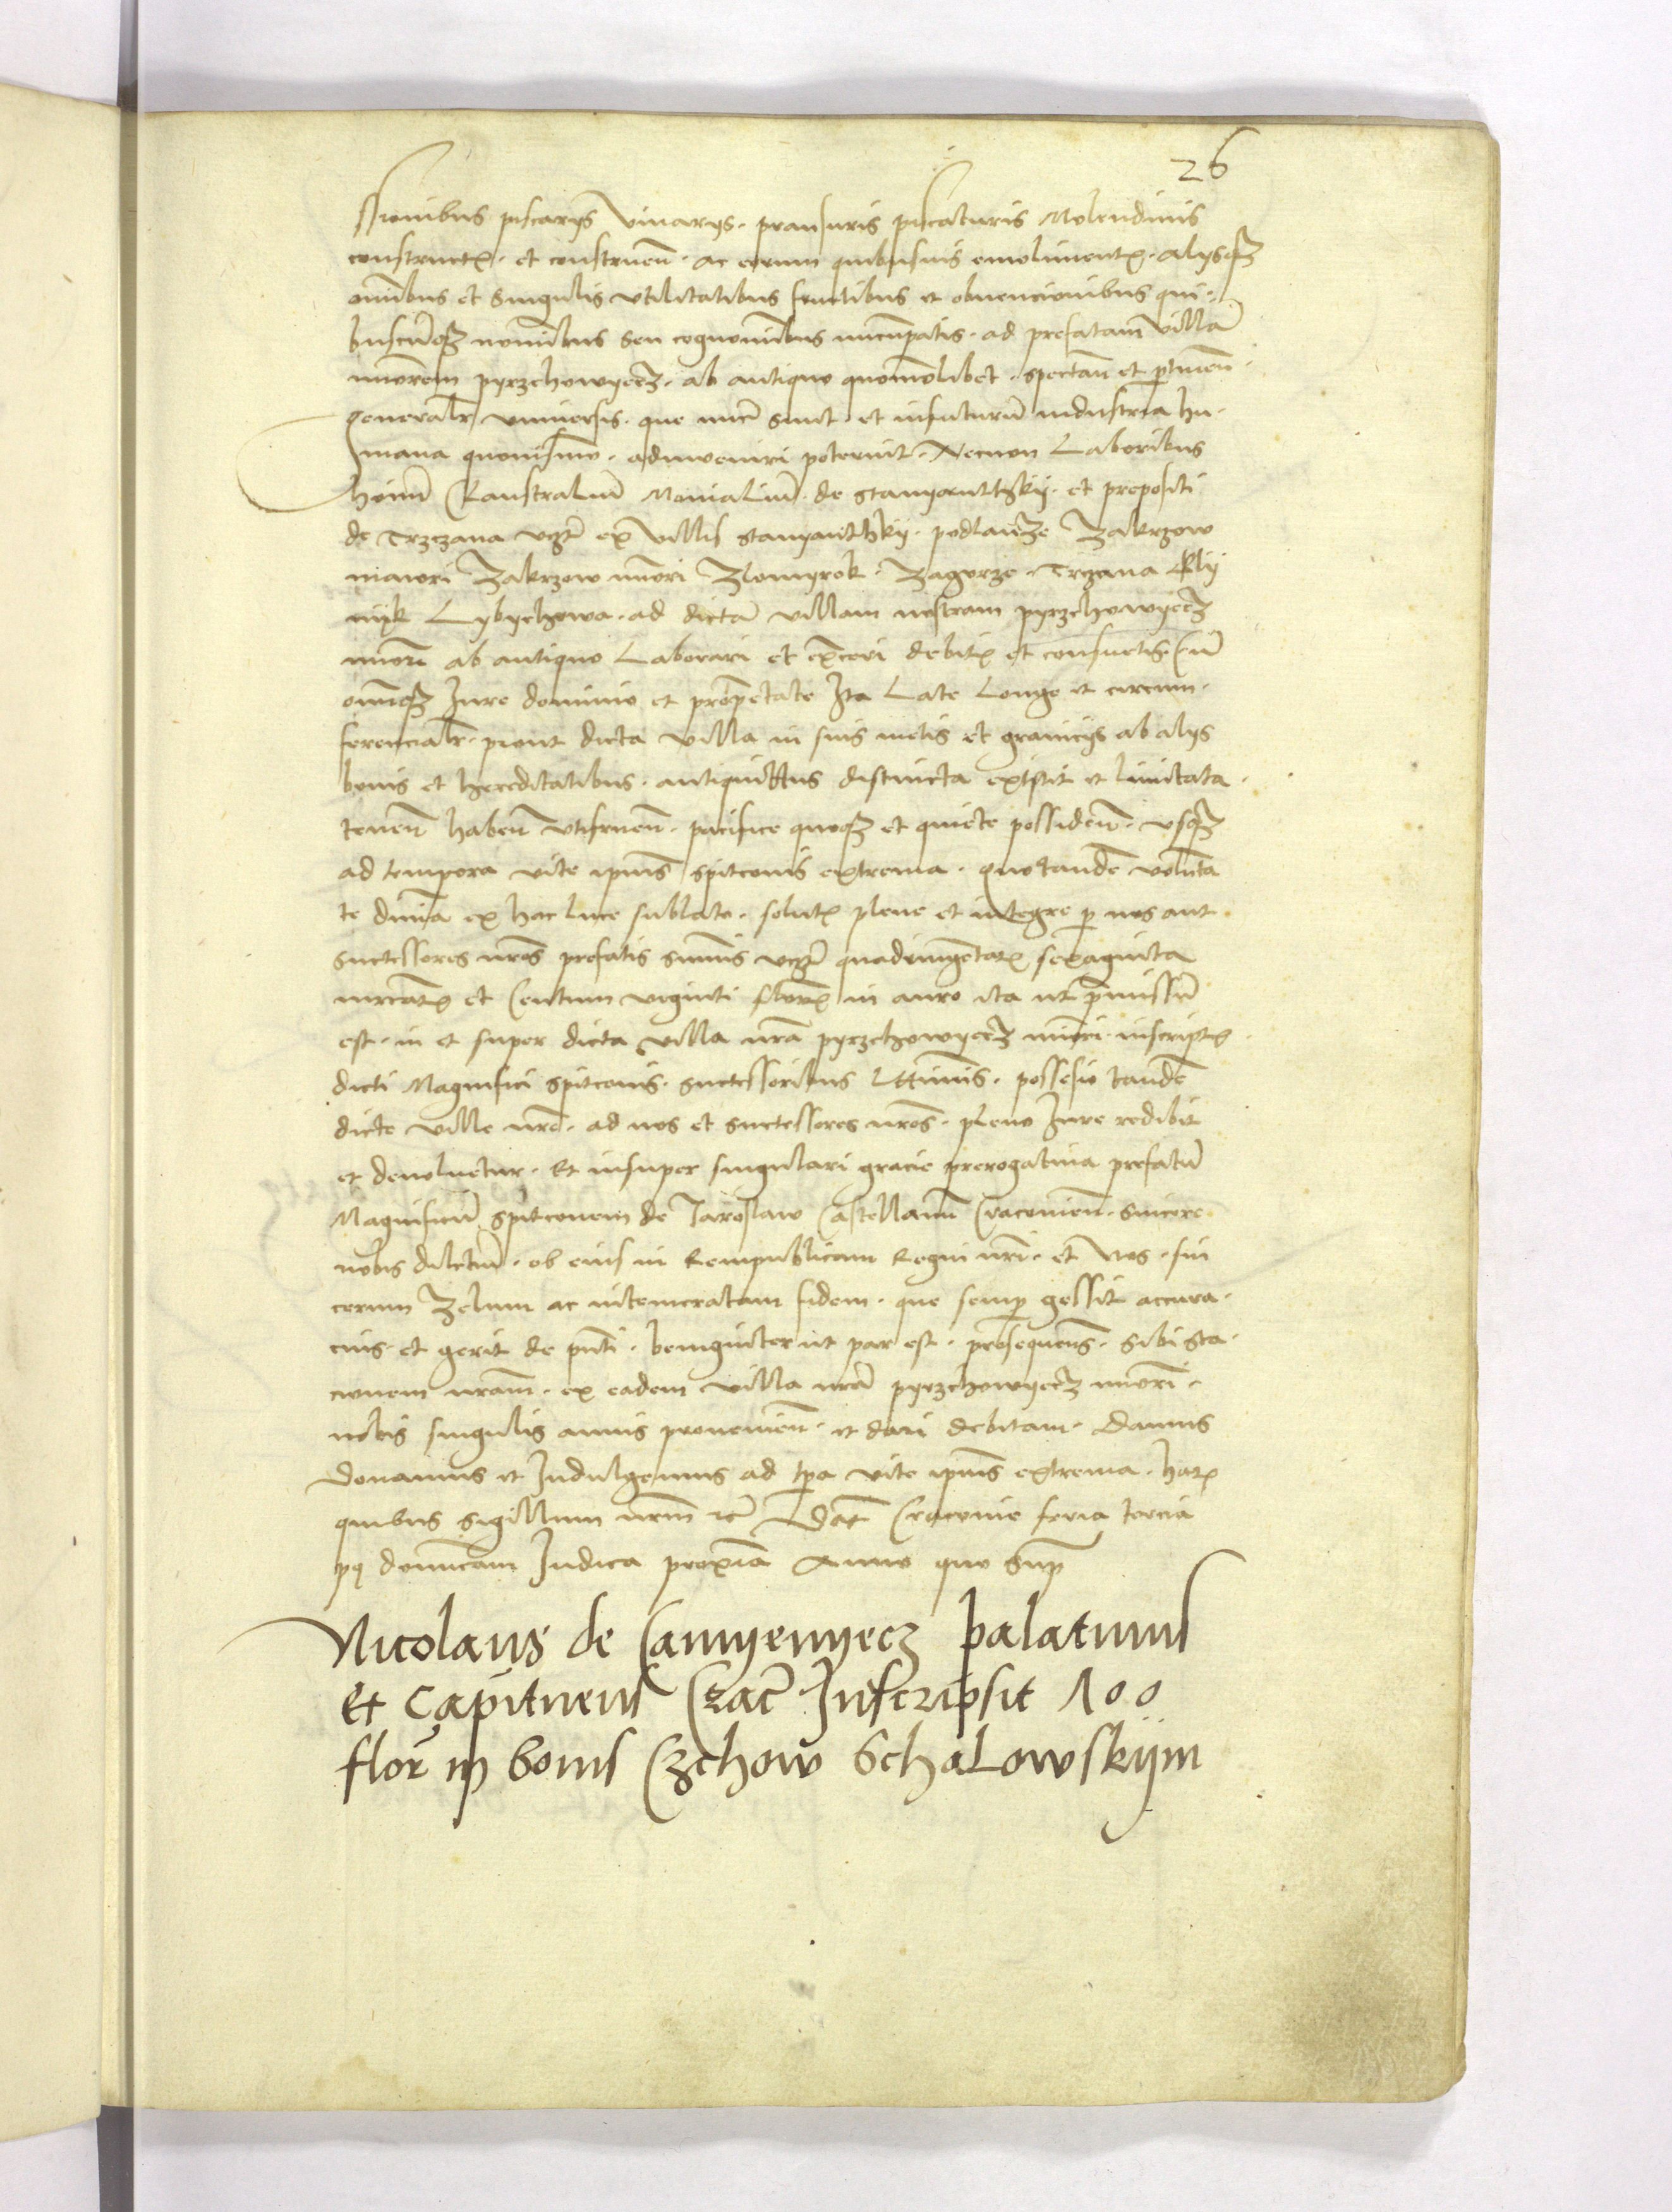 26
ssionibus piscarijs Vinarijs · pransuris piscaturis Molendinis
constructis · et construen̄ · ac eorum quibusuis emolimentis · alijsqz
om̄ibus et singulis vtilitatibus fructibus et obuencionibus qui-
buscūqz nominibus seu cognominibus nūcupatis · ad prefatam villā
minorem pyrzchowyecz · ab antiquo quomōlibet · spectan̄ et ꝑtinen̄ ·
generalr̄ vniuersis · que nūc sunt et infuturū industria hu-
mana quouismō · adinueniri poterint · Necnon Laboribus
hoīm Claustralium Monialium · de stanyanthky · et prepositi
de Trzczana vcz̄ ex villis stanyanthky · podlanze Zakrzow
maiori Zakrzow minori Zlomyrok · Zagorze · Trczana Kly
nyk Lybychowa · ad dictā villam nostram pyrzchowyecz
minorē ab antiquo Laborari et exerceri debitis et consuetis · Cū
om̄iqz Iure dominio et proprietate Ita Late Longe et circum-
ferencialr̄ · prout dicta villa in suis metis et granicijs ab alijs
bonis et hereditatibus · antiquittus distincta existit et limitata ·
tenen̄ haben̄ vtifruen̄ · pacifice quoqz et quiete possiden̄ · vsqz
ad tempora vite ipius spitconis extrema · quo tandē volunta
te diuina ex hac luce sublato · solutis plene et integre ꝑ nos aut
successores nr̄os prefatis sum̄is vcz̄ quadringentarum sexaginta
mrcarum et Centum viginti florenorum in auro ita ut p̄missum
est · in et super dicta villa nr̄a pyrzchowyecz minori inscriptis ·
dicti Magnifici spitconis · successoribus Lttimis · possesio tandē
dicte ville nr̄e · ad nos et successores nr̄os · pleno Iure redibit
et deuoluetur · Et insuper singulari gracie prerogatiua prefatū
Magnificū spitconem de Iaroslaw Castellanū Cracouien̄ · sincere
nobis dilctum · ob eius in Rempublicam Regni nr̄i · et Nos · sin
cerum Zelum ac intemeratam fidem · que semꝑ gessit accura-
cius · et gerit de pn̄ti · benigniter ut par est · prosequens · sibi sta-
cionem nr̄am · ex eadem villa nr̄a pyrzchowyecz minori ·
nobis singulis annis prouenien̄ · et dari debitam · Damus
Donamus et Indulgemus ad tp̄a vite ipius extrema · harum
quibus sigillum nr̄m etc̄ Dat̄ Cracouie feria tercia
pꝰ dominicam Iudica proximā Anno quo sup̄
Nicolaus de Camyenyecz palatinus
et Capitneus Crac̄ Inscripsit 100
flor̄ in bonis Czchow Schalowskym